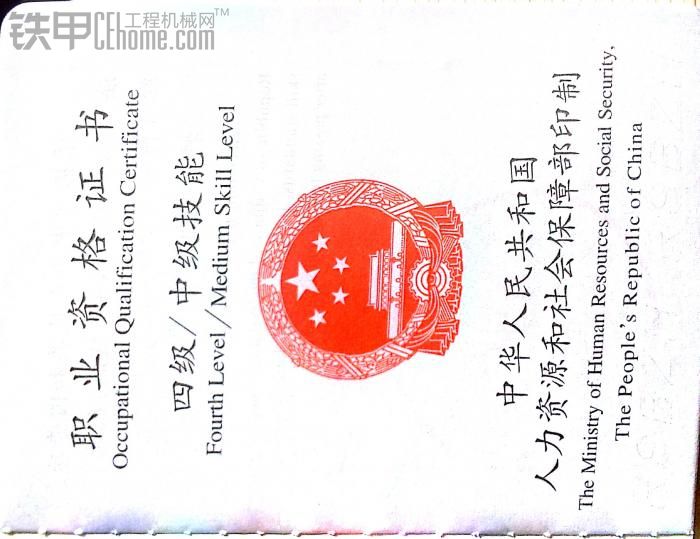 铁甲 工程机械网™
CEhome.com
职业资格证书
Occupational Qualification Certificate
四级/中级技能
Fourth Level/Medium Skill Level
中华人民共和国
人力资源和社会保障部印制
The Ministry of Human Resources and Social Security,
The People's Republic of China